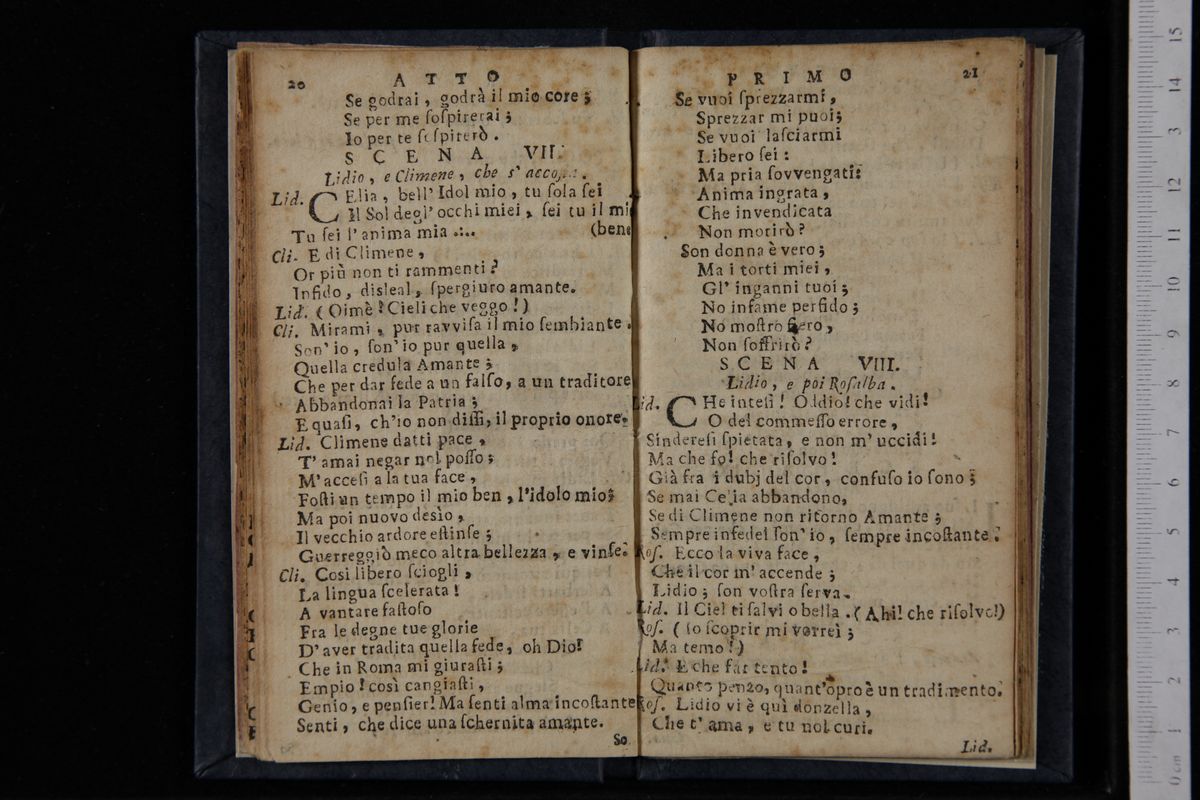 20 ATTO
Se godrai, godrà il mio core;
Se per me ſoſpirerai;
Io per te ſoſpirerò.
SCENA VII.
Lidio, e Climene, che s'
Lid. CElia, bell' Idol mio, tu ſola ſei
Il Sol degl' occhi miei, ſei tu il mi
Tu ſei l'anima mia .... (bene
Cli. E di Climene,
Or più non ti rammenti?
Infido, disleal, ſpergiuro amante.
Lid. (Oimè! Cieli che veggo!)
Cli. Mirami, pur ravviſa il mio ſembiante.
Son' io, ſon' io pur quella,
Quella credula Amante;
Che per dar fede a un falſo, a un traditore
Abbandonai la Patria;
E quaſi, ch'io non diſſi, il proprio onore.
Lid. Climene datti pace,
T' amai negar nol poſſo;
M' acceſi a la tua face,
Foſti un tempo il mio ben, l'idolo mio;
Ma poi nuovo desìo,
Il vecchio ardore eſtinſe;
Guerreggiò meco altra bellezza, e vinſe.
Cli. Così libero ſciogli,
La lingua ſcelerata!
A vantare faſtoſo
Fra le degne tue glorie
D' aver tradita quella fede, oh Dio!
Che in Roma mi giuraſti;
Empio! così cangiaſti,
Genio, e penſier! Ma ſenti alma incoſtante
Senti, che dice una ſchernita amante.
So
PRIMO 21
Se vuoi ſprezzarmi,
Sprezzar mi puoi;
Se vuoi laſciarmi
Libero ſei:
Ma pria ſovvengati:
Anima ingrata,
Che invendicata
Non morirò?
Son donna è vero;
Ma i torti miei,
Gl' inganni tuoi;
No infame perfido;
No moſtro fiero,
Non ſoffrirò?
SCENA VIII.
Lidio, e poi Roſalba.
Lid. CHe inteſi! O Idio! che vidi!
O del commeſſo errore,
Sindereſi ſpietata, e non m' uccidi!
Ma che fo! che riſolvo!
Già fra i dubj del cor, confuſo io ſono;
Se mai Celia abbandono,
Se di Climene non ritorno Amante;
Sempre infedel ſon' io, ſempre incoſtante.
Roſ. Ecco la viva face,
Che il cor m' accende;
Lidio; ſon voſtra ſerva.
Lid. Il Ciel ti ſalvi o bella. (Ahi! che riſolvo!)
Roſ. (Io ſcoprir mi vorrei;
Ma temo!)
Lid. E che far tento!
Quanto penzo, quant'opro è un tradimento.
Roſ. Lidio vi è quì donzella,
Che t' ama, e tu nol curi.
Lid.
15
14
13
12
11
10
9
8
7
6
5
4
3
2
1
0 cm